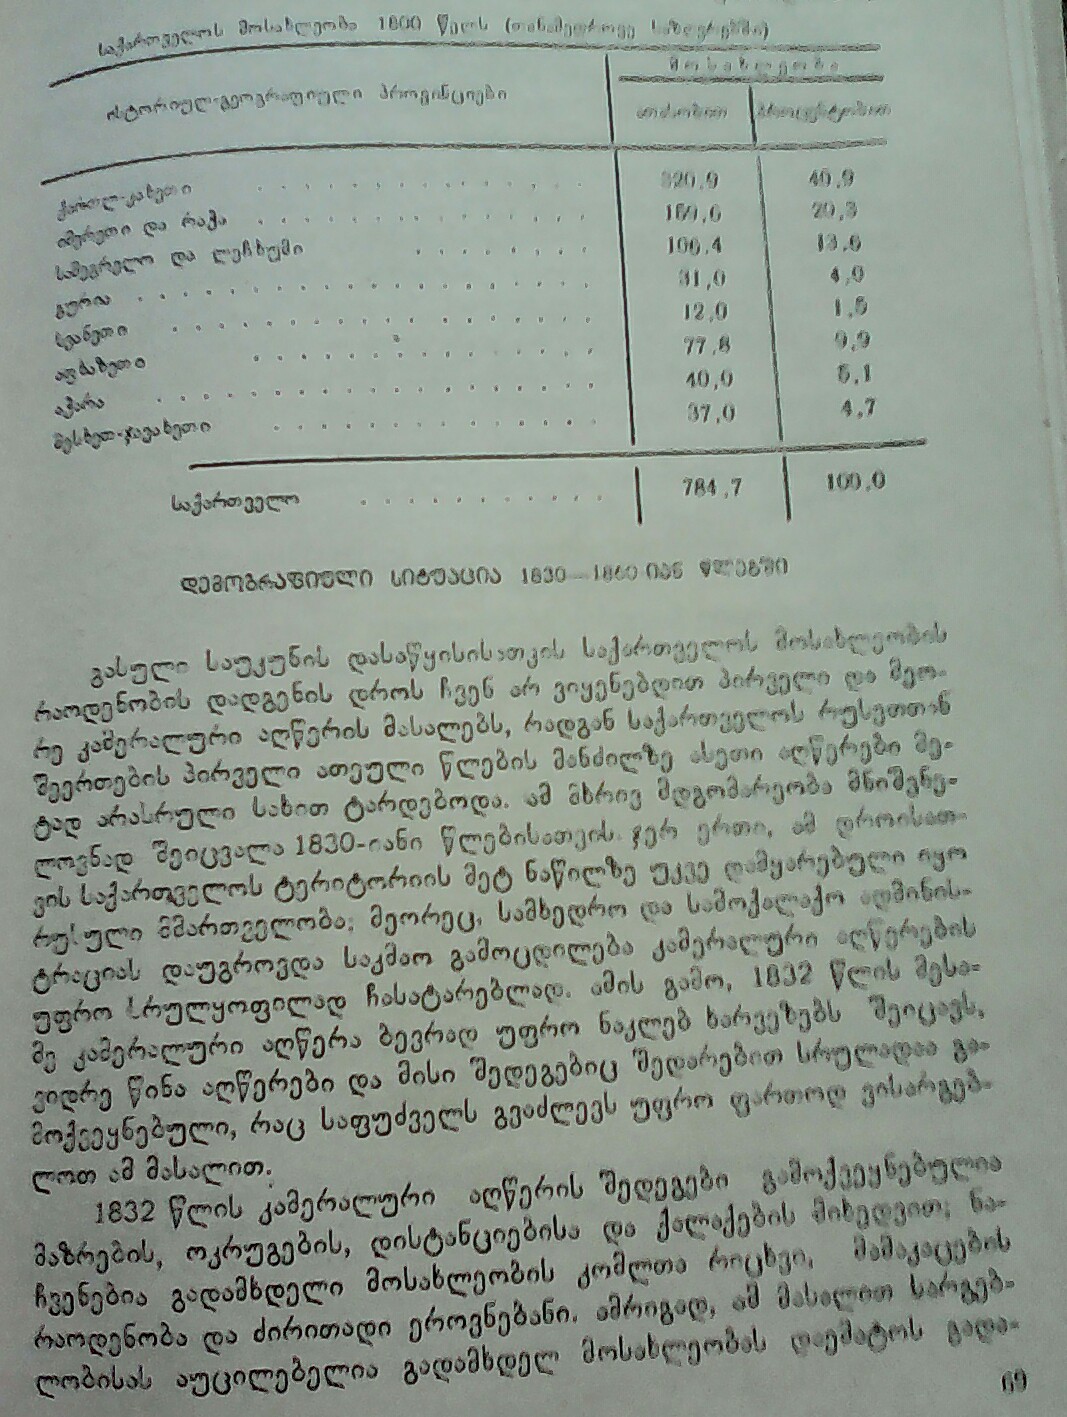 საქართველოს მოსახლეობა 1800 წელს (თანამედროვე საზღვრებში)
მოსახლეობა
ისტორიულ-გეოგრაფიული პროვინციები
ათასობით პროცენტობით
ქართლ-კახეთი 320,9 40,9
იმერეთი და რაჭა 159,6 20,3
სამეგრელო და ლეჩხუმი 106,4 13,6
გურია 31,0 4,0
სვანეთი 12,0 1,5
აფხაზეთი 77,8 9,9
აჭარა 40,0 5,1
მესხეთ-ჯავახეთი 37,0 4,7
საქართველო 784,7 100,0
დემოგრაფიული სიტუაცია 1830—1860-იან წლებში
გასული საუკუნის დასაწყისისათვის საქართველოს მოსახლეობის
რაოდენობის დადგენის დროს ჩვენ არ ვიყენებდით პირველი და მეო-
რე კამერალური აღწერის მასალებს, რადგან საქართველოს რუსეთთან
შეერთების პირველი ათეული წლების მანძილზე ასეთი აღწერები მე-
ტად არასრული სახით ტარდებოდა. ამ მხრივ მდგომარეობა მნიშვნე-
ლოვნად შეიცვალა 1830-იანი წლებისათვის. ჯერ ერთი, ამ დროისათ-
ვის საქართველოს ტერიტორიის მეტ ნაწილზე უკვე დამყარებული იყო
რუსული მმართველობა; მეორეც, სამხედრო და სამოქალაქო ადმინის-
ტრაციას დაუგროვდა საკმაო გამოცდილება კამერალური აღწერების
უფრო სრულყოფილად ჩასატარებლად. ამის გამო, 1832 წლის მესა-
მე კამერალური აღწერა ბევრად უფრო ნაკლებ ხარვეზებს შეიცავს,
ვიდრე წინა აღწერები და მისი შედეგებიც შედარებით სრულადაა გა-
მოქვეყნებული, რაც საფუძველს გვაძლევს უფრო ფართოდ ვისარგებ-
ლოთ ამ მასალით.
1832 წლის კამერალური აღწერის შედეგები გამოქვეყნებულია
მაზრების, ოკრუგების, დისტანციებისა და ქალაქების მიხედვით; ნა-
ჩვენებია გადამხდელი მოსახლეობის კომლთა რიცხვი, მამაკაცების
რაოდენობა და ძირითადი ეროვნებანი. ამრიგად, ამ მასალით სარგებ-
ლობისას აუცილებელია გადამხდელ მოსახლეობას დაემატოს გადა-
69